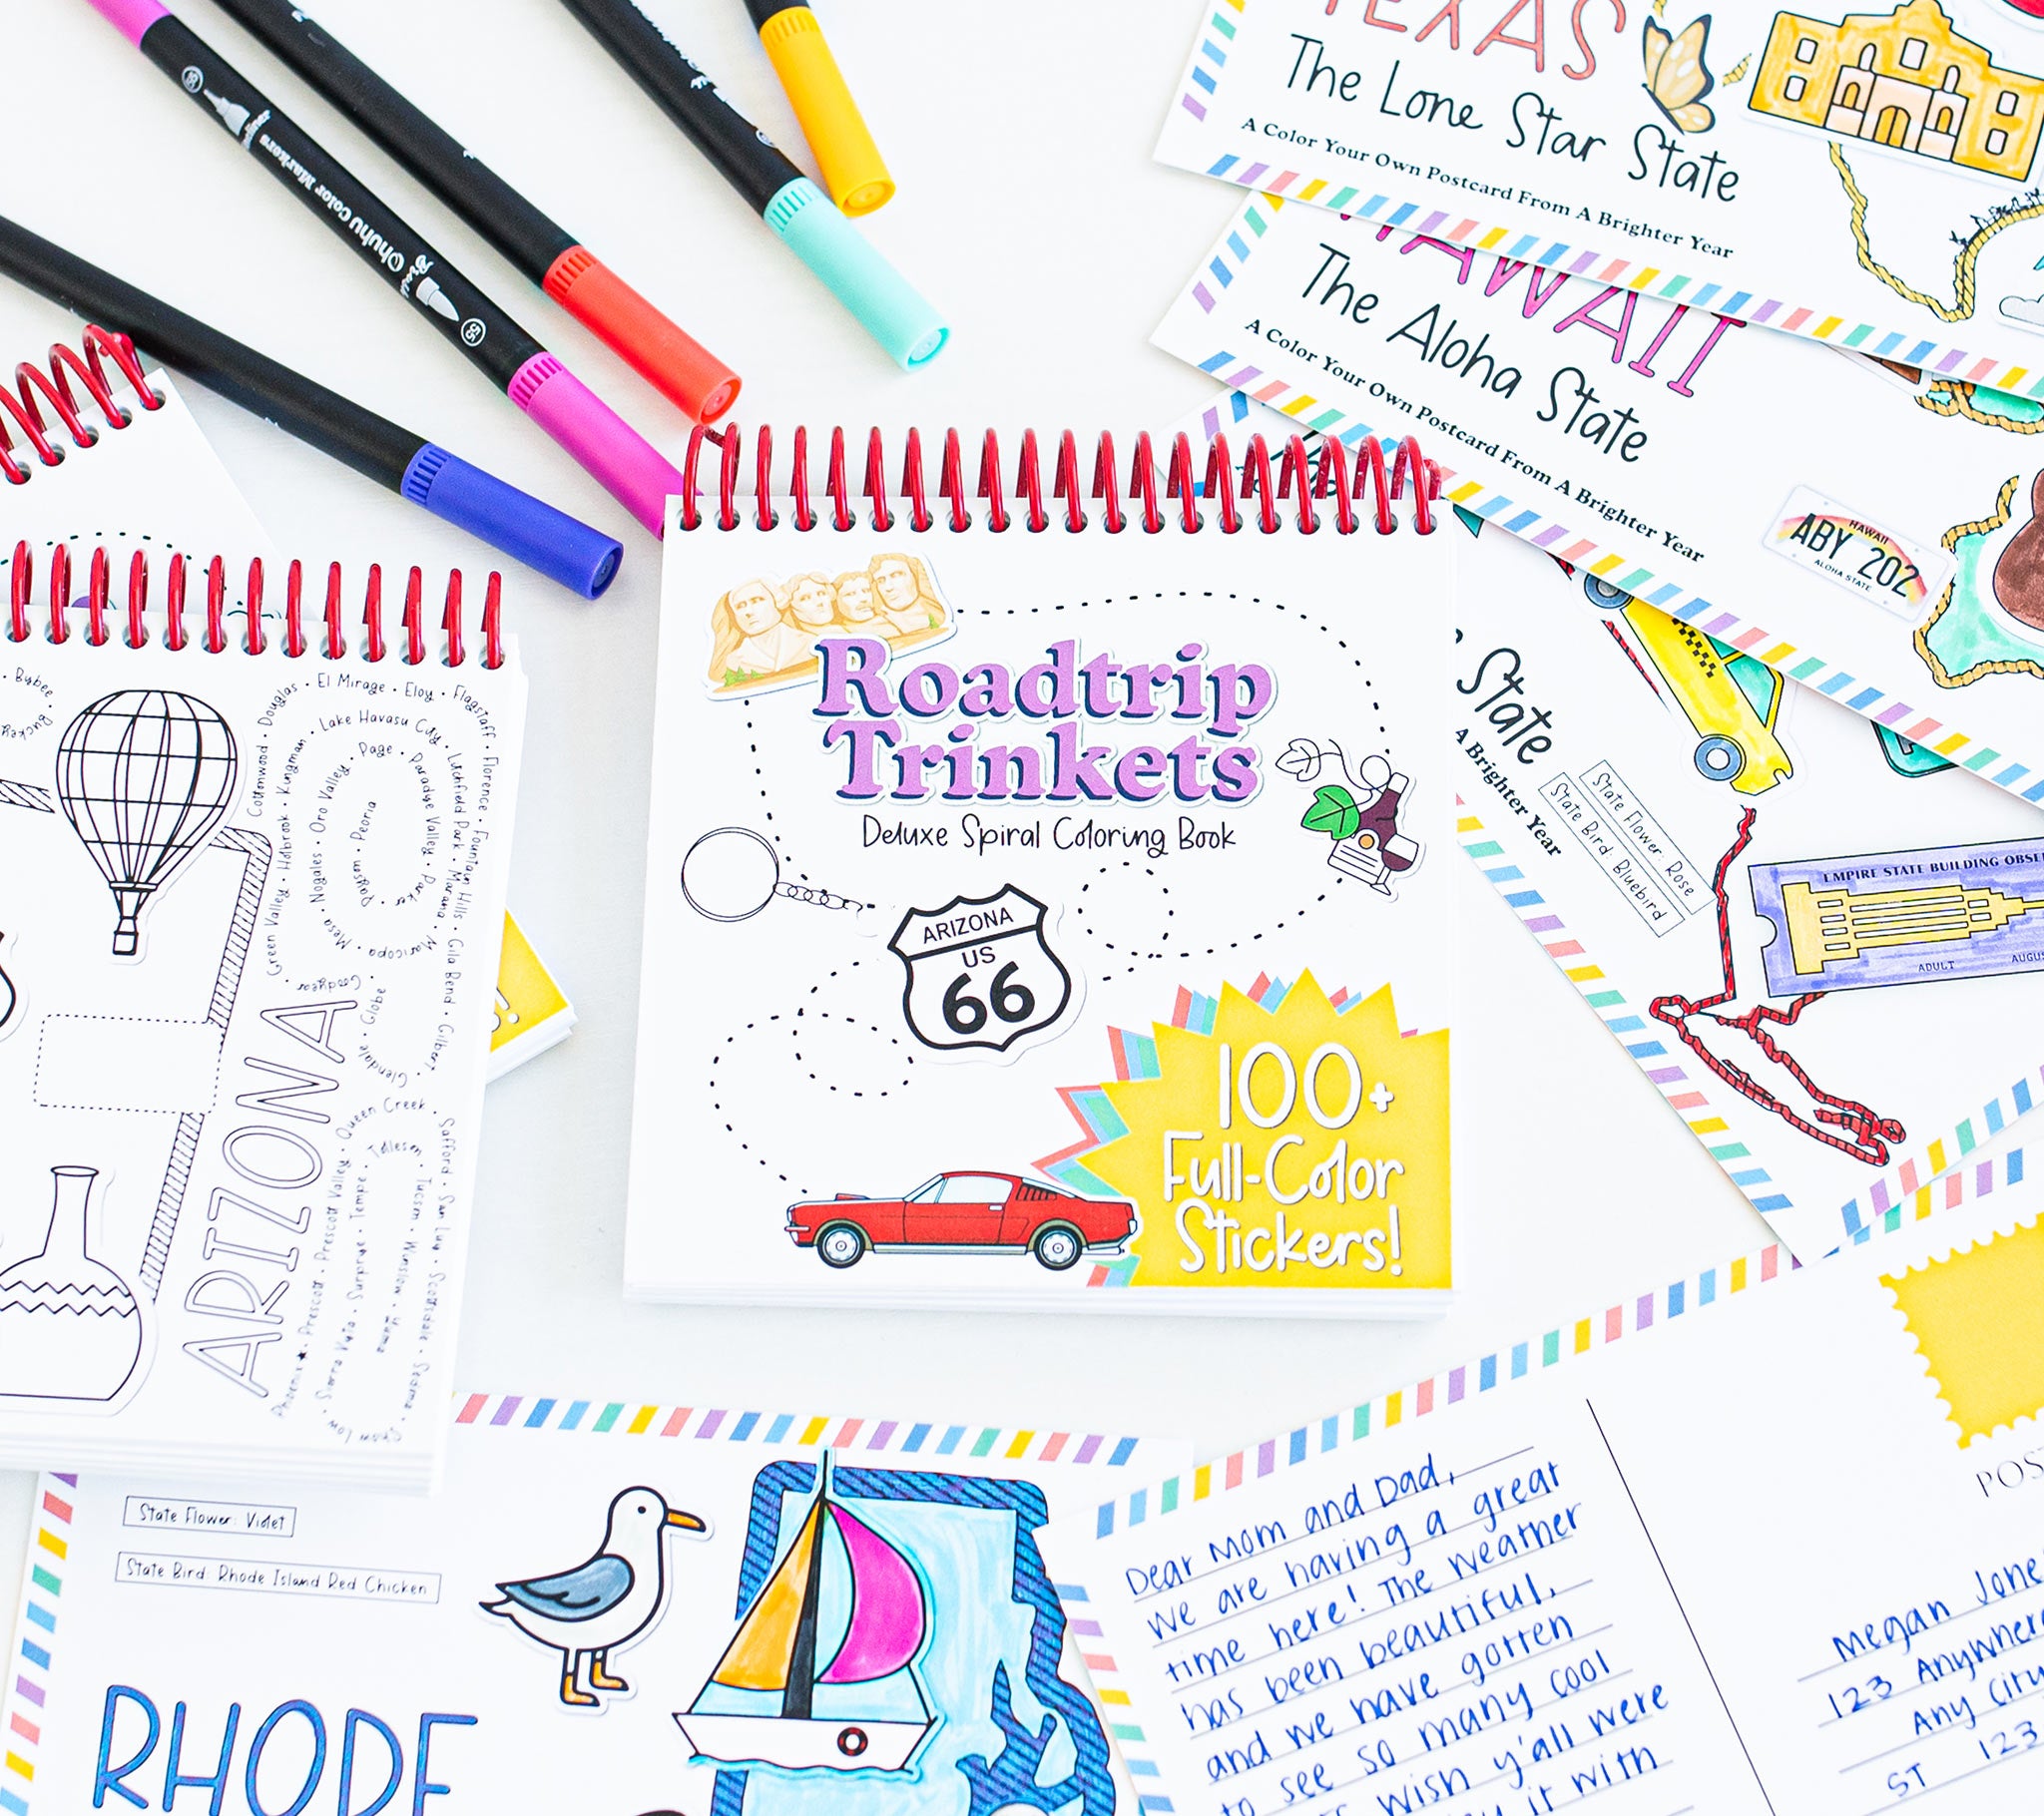 Ohuhu Color Markers
55
TEXAS
The Lone Star State
A Color Your Own Postcard From A Brighter Year
HAWAII
The Aloha State
A Color Your Own Postcard From A Brighter Year
HAWAII
ABY 202
ALOHA STATE
State
A Brighter Year
State Flower: Rose
State Bird: Bluebird
EMPIRE STATE BUILDING
ADULT
Roadtrip
Trinkets
Deluxe Spiral Coloring Book
ARIZONA
US
66
100+
Full-Color
Stickers!
ARIZONA
Bisbee
Cottonwood · Douglas · El Mirage · Eloy · Flagstaff · Florence · Fountain Hills · Gila Bend · Gilbert
Glendale · Globe
Goodyear
Green Valley · Holbrook · Kingman · Lake Havasu City · Litchfield Park · Marana · Maricopa
Mesa · Nogales · Oro Valley · Page · Paradise Valley · Parker
Payson · Peoria
Phoenix · Prescott · Prescott Valley · Queen Creek · Safford · San Luis · Scottsdale · Sedona
Show Low
Sierra Vista · Surprise · Tempe · Tolleson · Tucson · Winslow · Yuma
State Flower: Violet
State Bird: Rhode Island Red Chicken
RHODE
Dear Mom and Dad,
We are having a great
time here! The weather
has been beautiful,
and we have gotten
to see so many cool
wish y'all were
it with
Megan Jone
123 Anywhere
Any City
ST 123